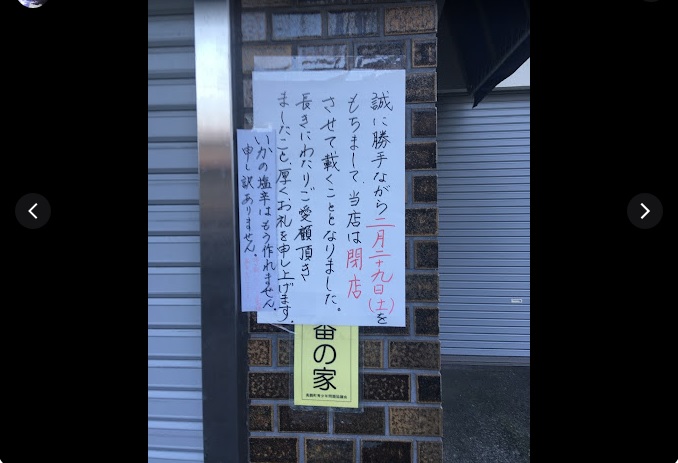 誠に勝手ながら二月二十九日(土)を
もちまして、当店は閉店
させて載くこととなりました。
長きにわたりご愛顧頂き
ましたこと、厚くお礼を申し上げます。
いかの塩辛はもう作れません。
申し訳ありません。
番の家